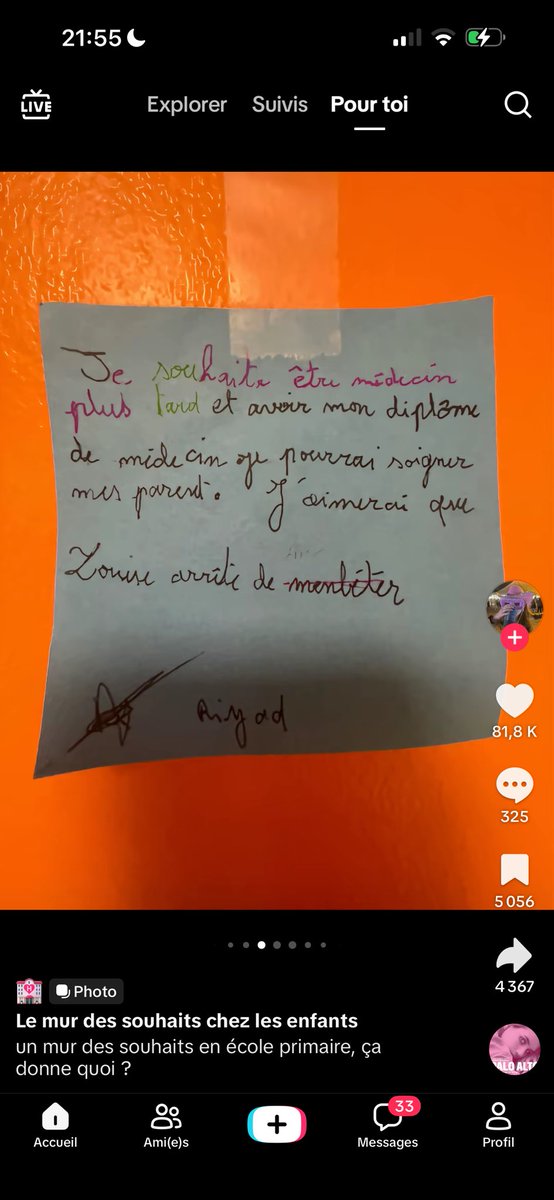 21:55
LIVE
Explorer Suivis Pour toi
Je souhaite être médecin
plus tard et avoir mon diplôme
de médecin je pourrai soigner
mes parent. J'aimerai que
Louise arrête de
Riyad
81,8 K
325
5 056
4 367
Photo
Le mur des souhaits chez les enfants
un mur des souhaits en école primaire, ça
donne quoi ?
Accueil Ami(e)s Messages 33 Profil